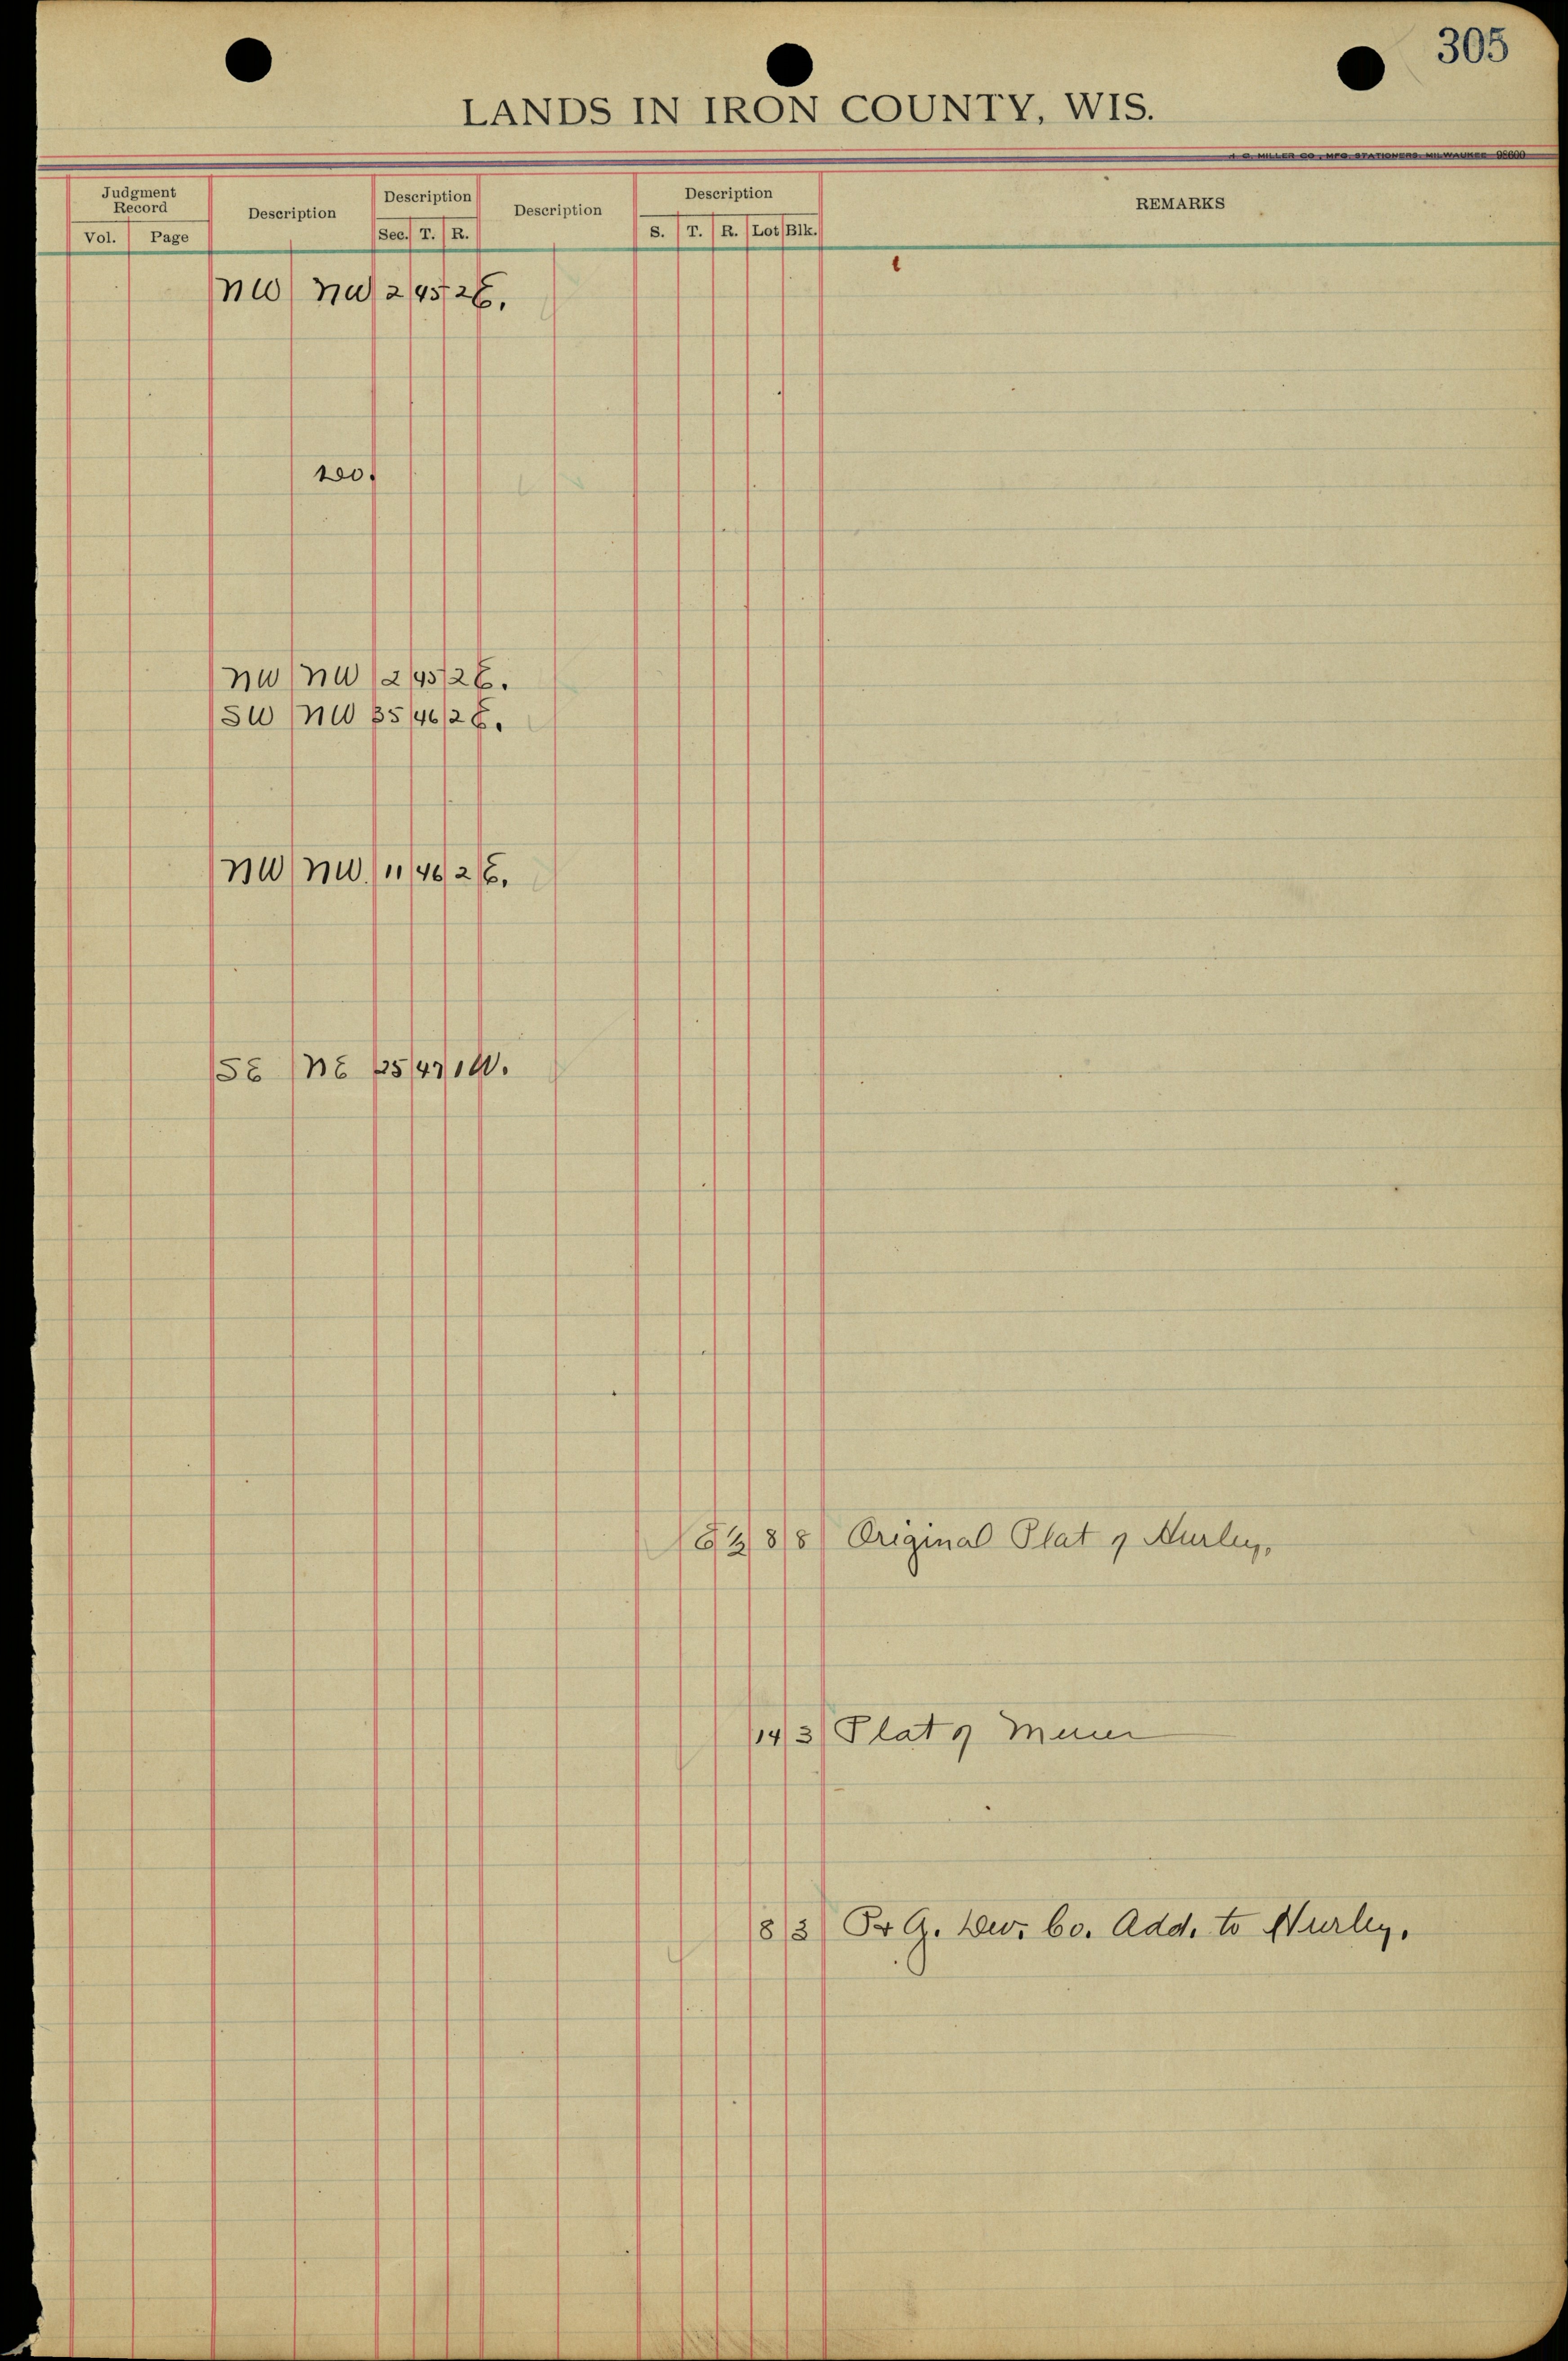 305
LANDS IN IRON COUNTY, WIS.
H. C. MILLER CO., MFG. STATIONERS, MILWAUKEE 98600
Judgment Record Description Description Description Description REMARKS
Vol. Page Sec. T. R. S. T. R. Lot Blk.
NW NW 2 45 2E.
NW NW 2 45 2E.
SW NW 35 46 2E.
NW NW. 11 46 2E.
SE NE 25 47 1W.
E ½ 8 8 Original Plat of Hurley,
14 3 Plat of Mercer
8 3 P & G. Dev. Co. Add. to Hurley.